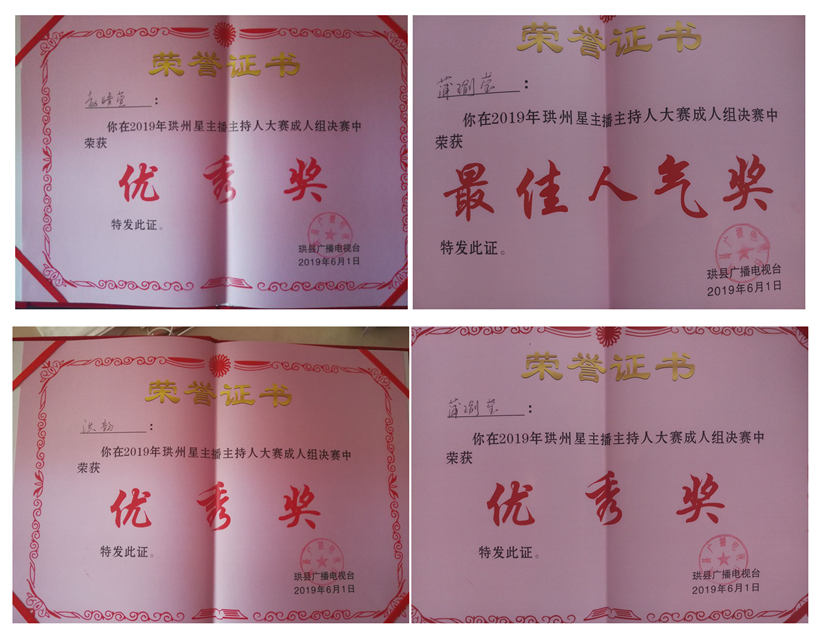 荣誉证书
：
你在2019年珙州星主播主持人大赛成人组决赛中
荣获
优秀奖
特发此证。
珙县广播电视台
2019年6月1日
荣誉证书
：
你在2019年珙州星主播主持人大赛成人组决赛中
荣获
最佳人气奖
特发此证。
珙县广播电视台
2019年6月1日
荣誉证书
：
你在2019年珙州星主播主持人大赛成人组决赛中
荣获
优秀奖
特发此证。
珙县广播电视台
2019年6月1日
荣誉证书
：
你在2019年珙州星主播主持人大赛成人组决赛中
荣获
优秀奖
特发此证。
珙县广播电视台
2019年6月1日